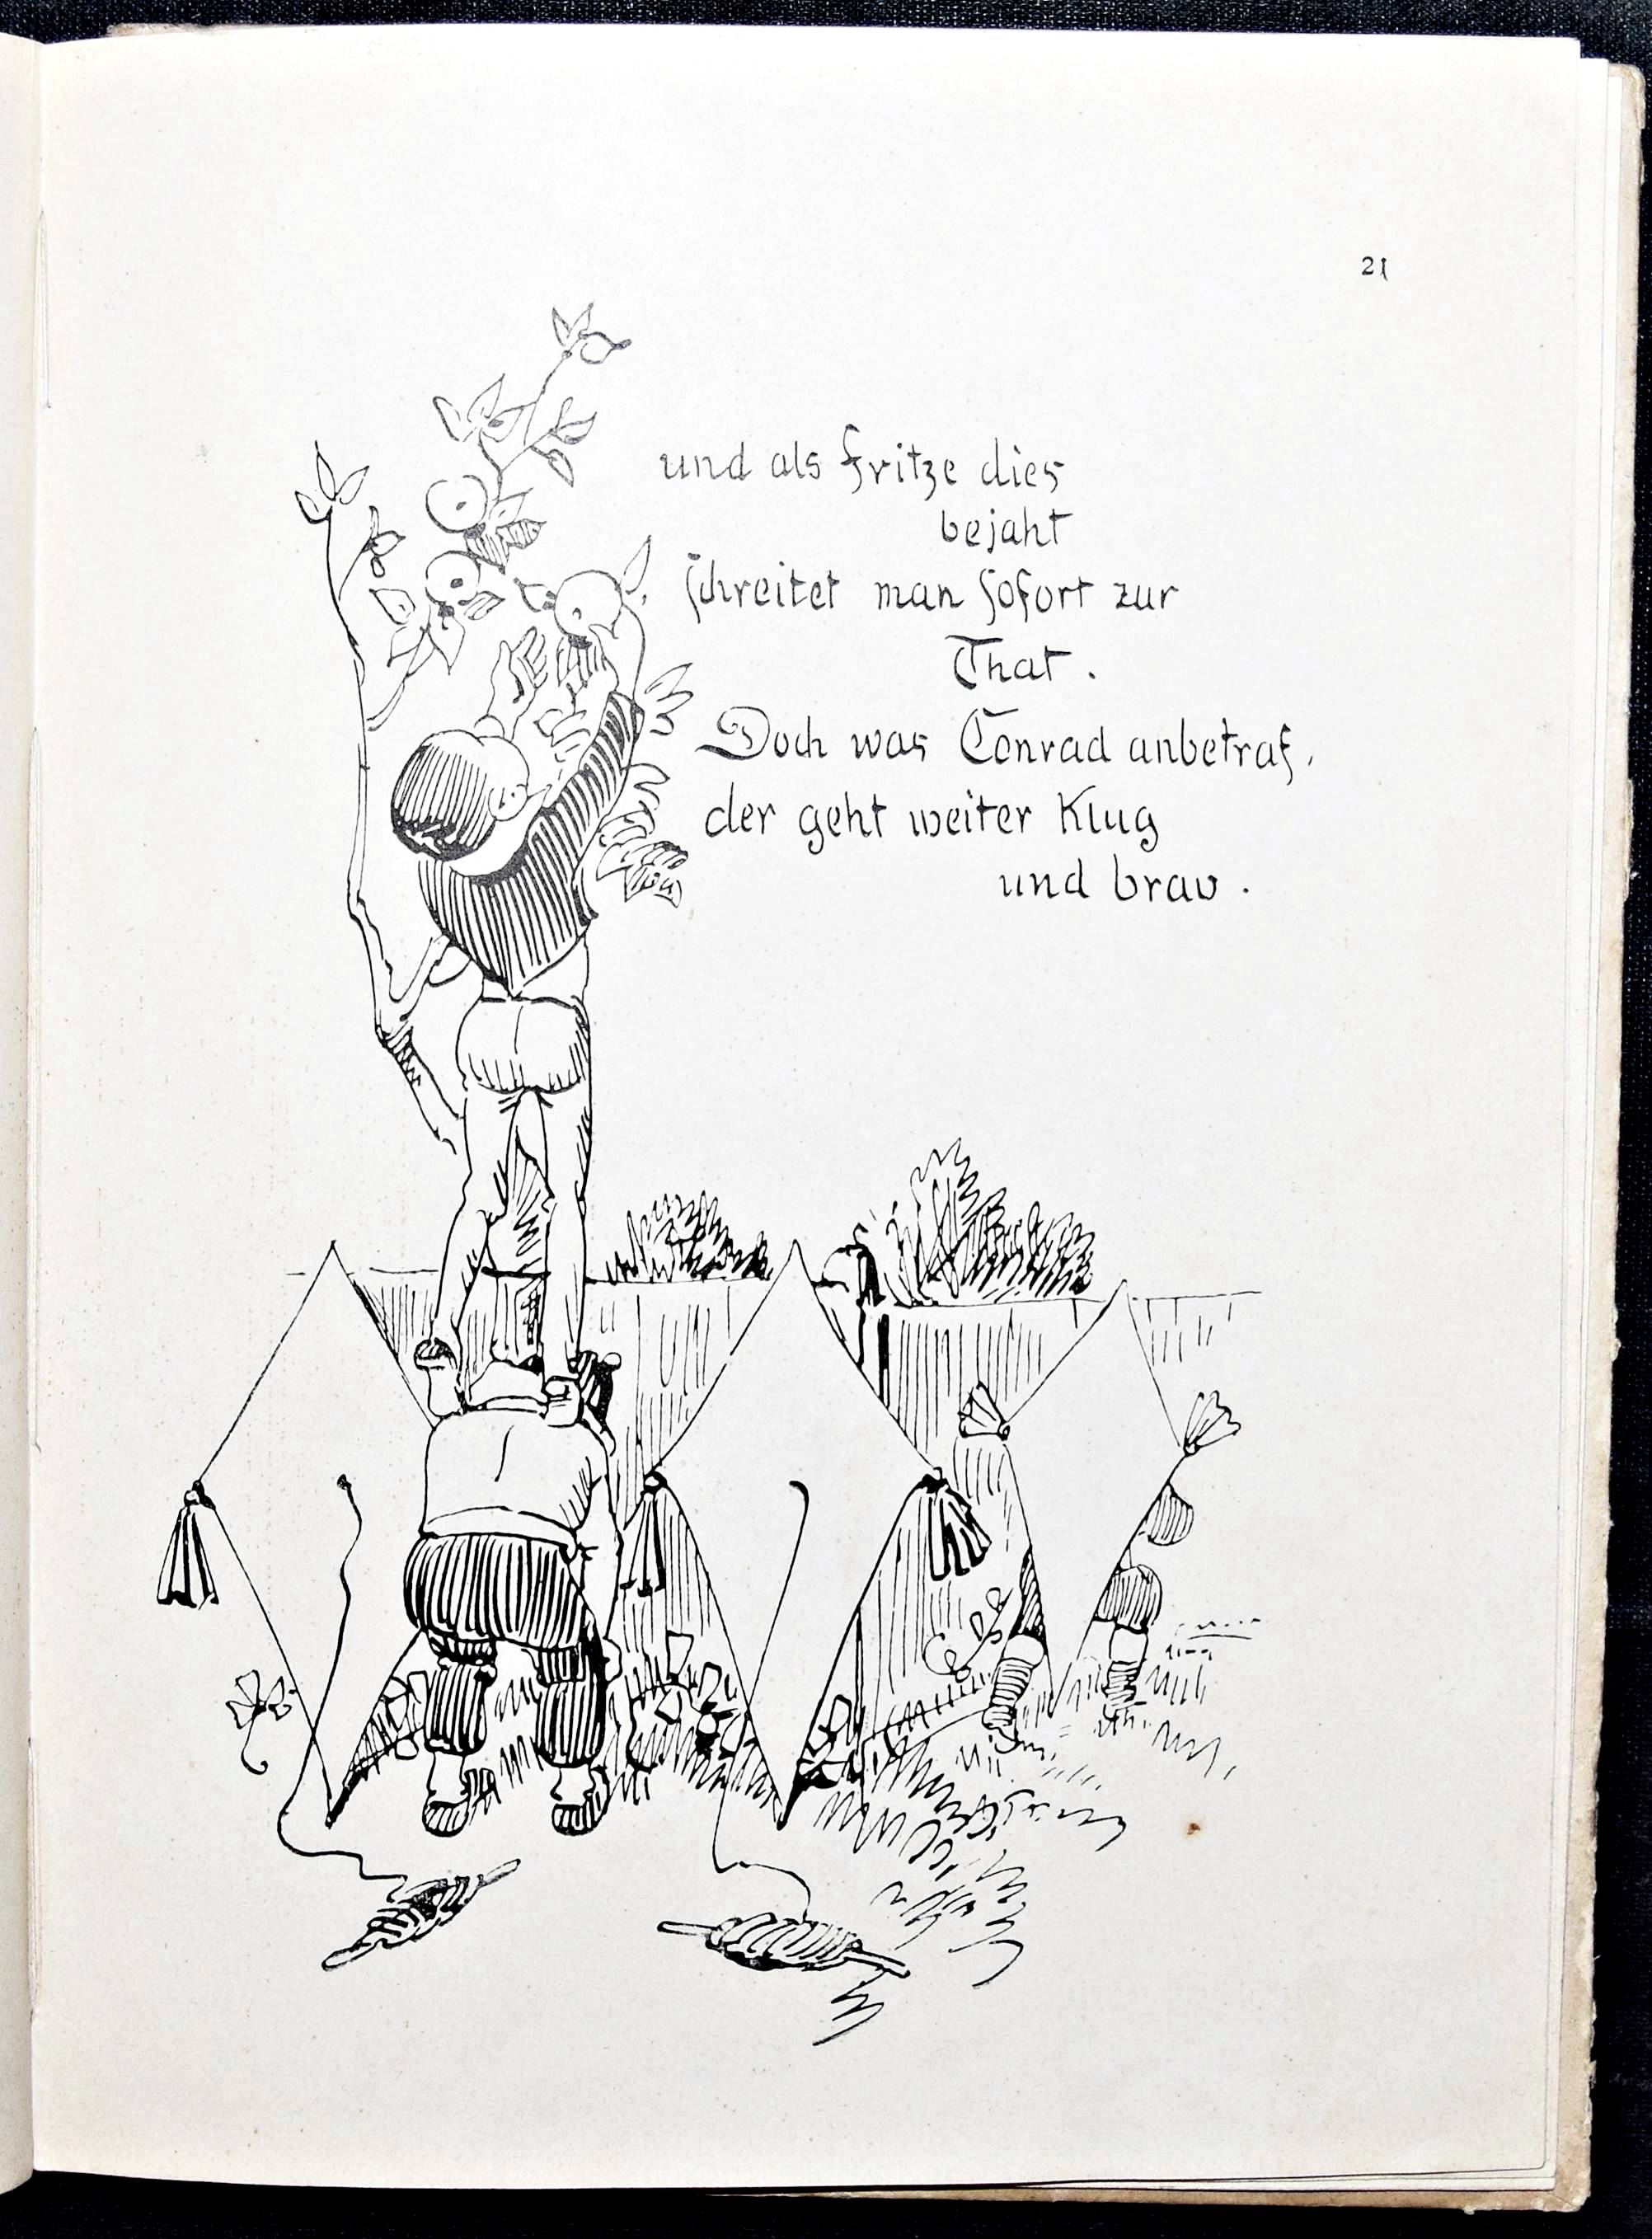 21
und als Fritze dies
bejaht
schreitet man sofort zur
That.
Doch was Conrad anbetraf,
der geht weiter klug
und brav.